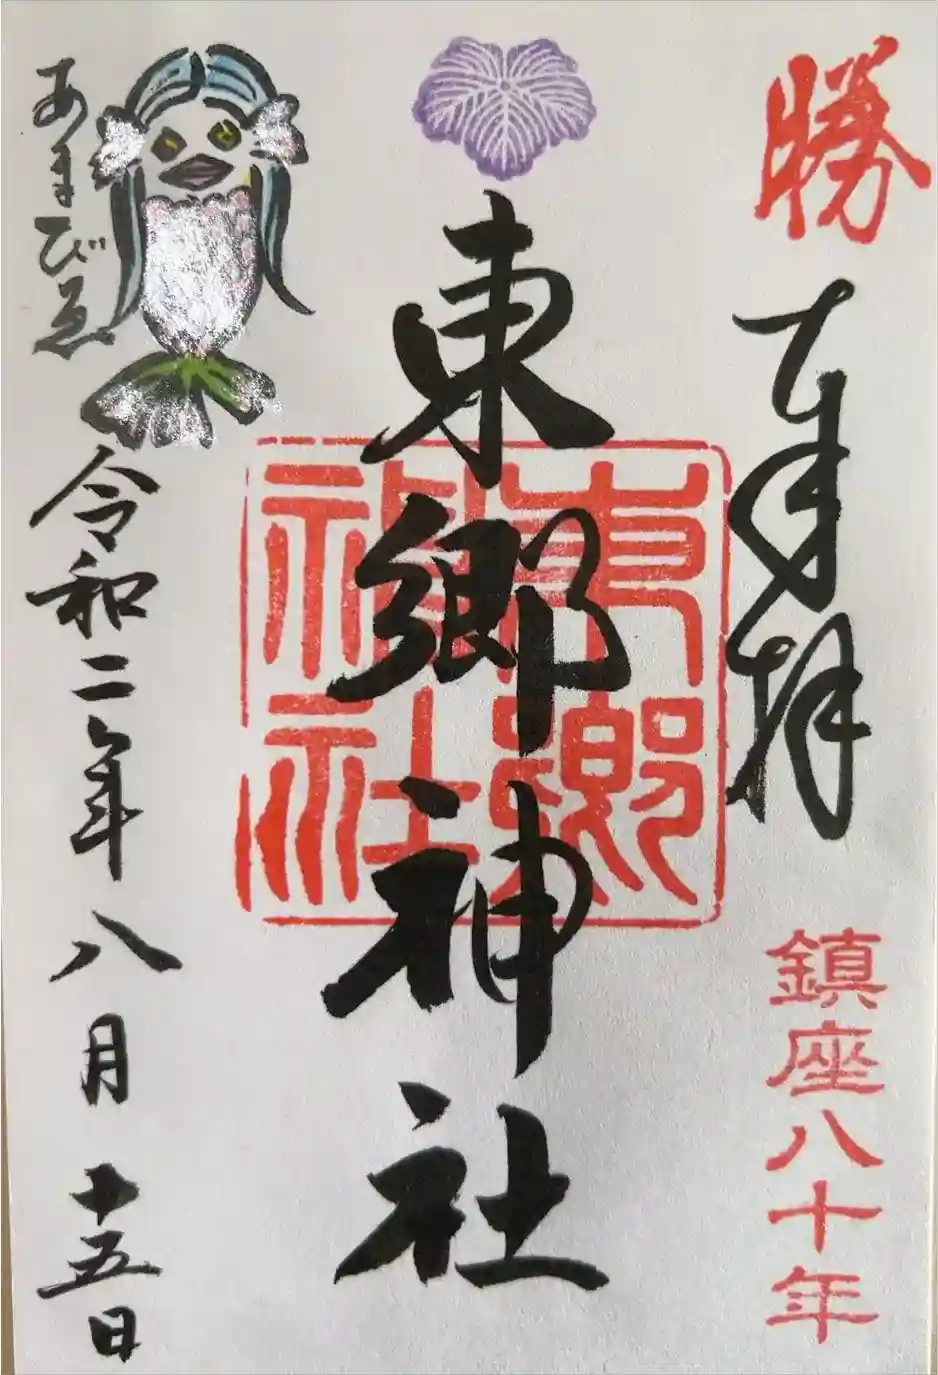 勝
奉拝
鎮座八十年
東郷神社
東郷
神社
あまびゑ
令和二年八月十五日